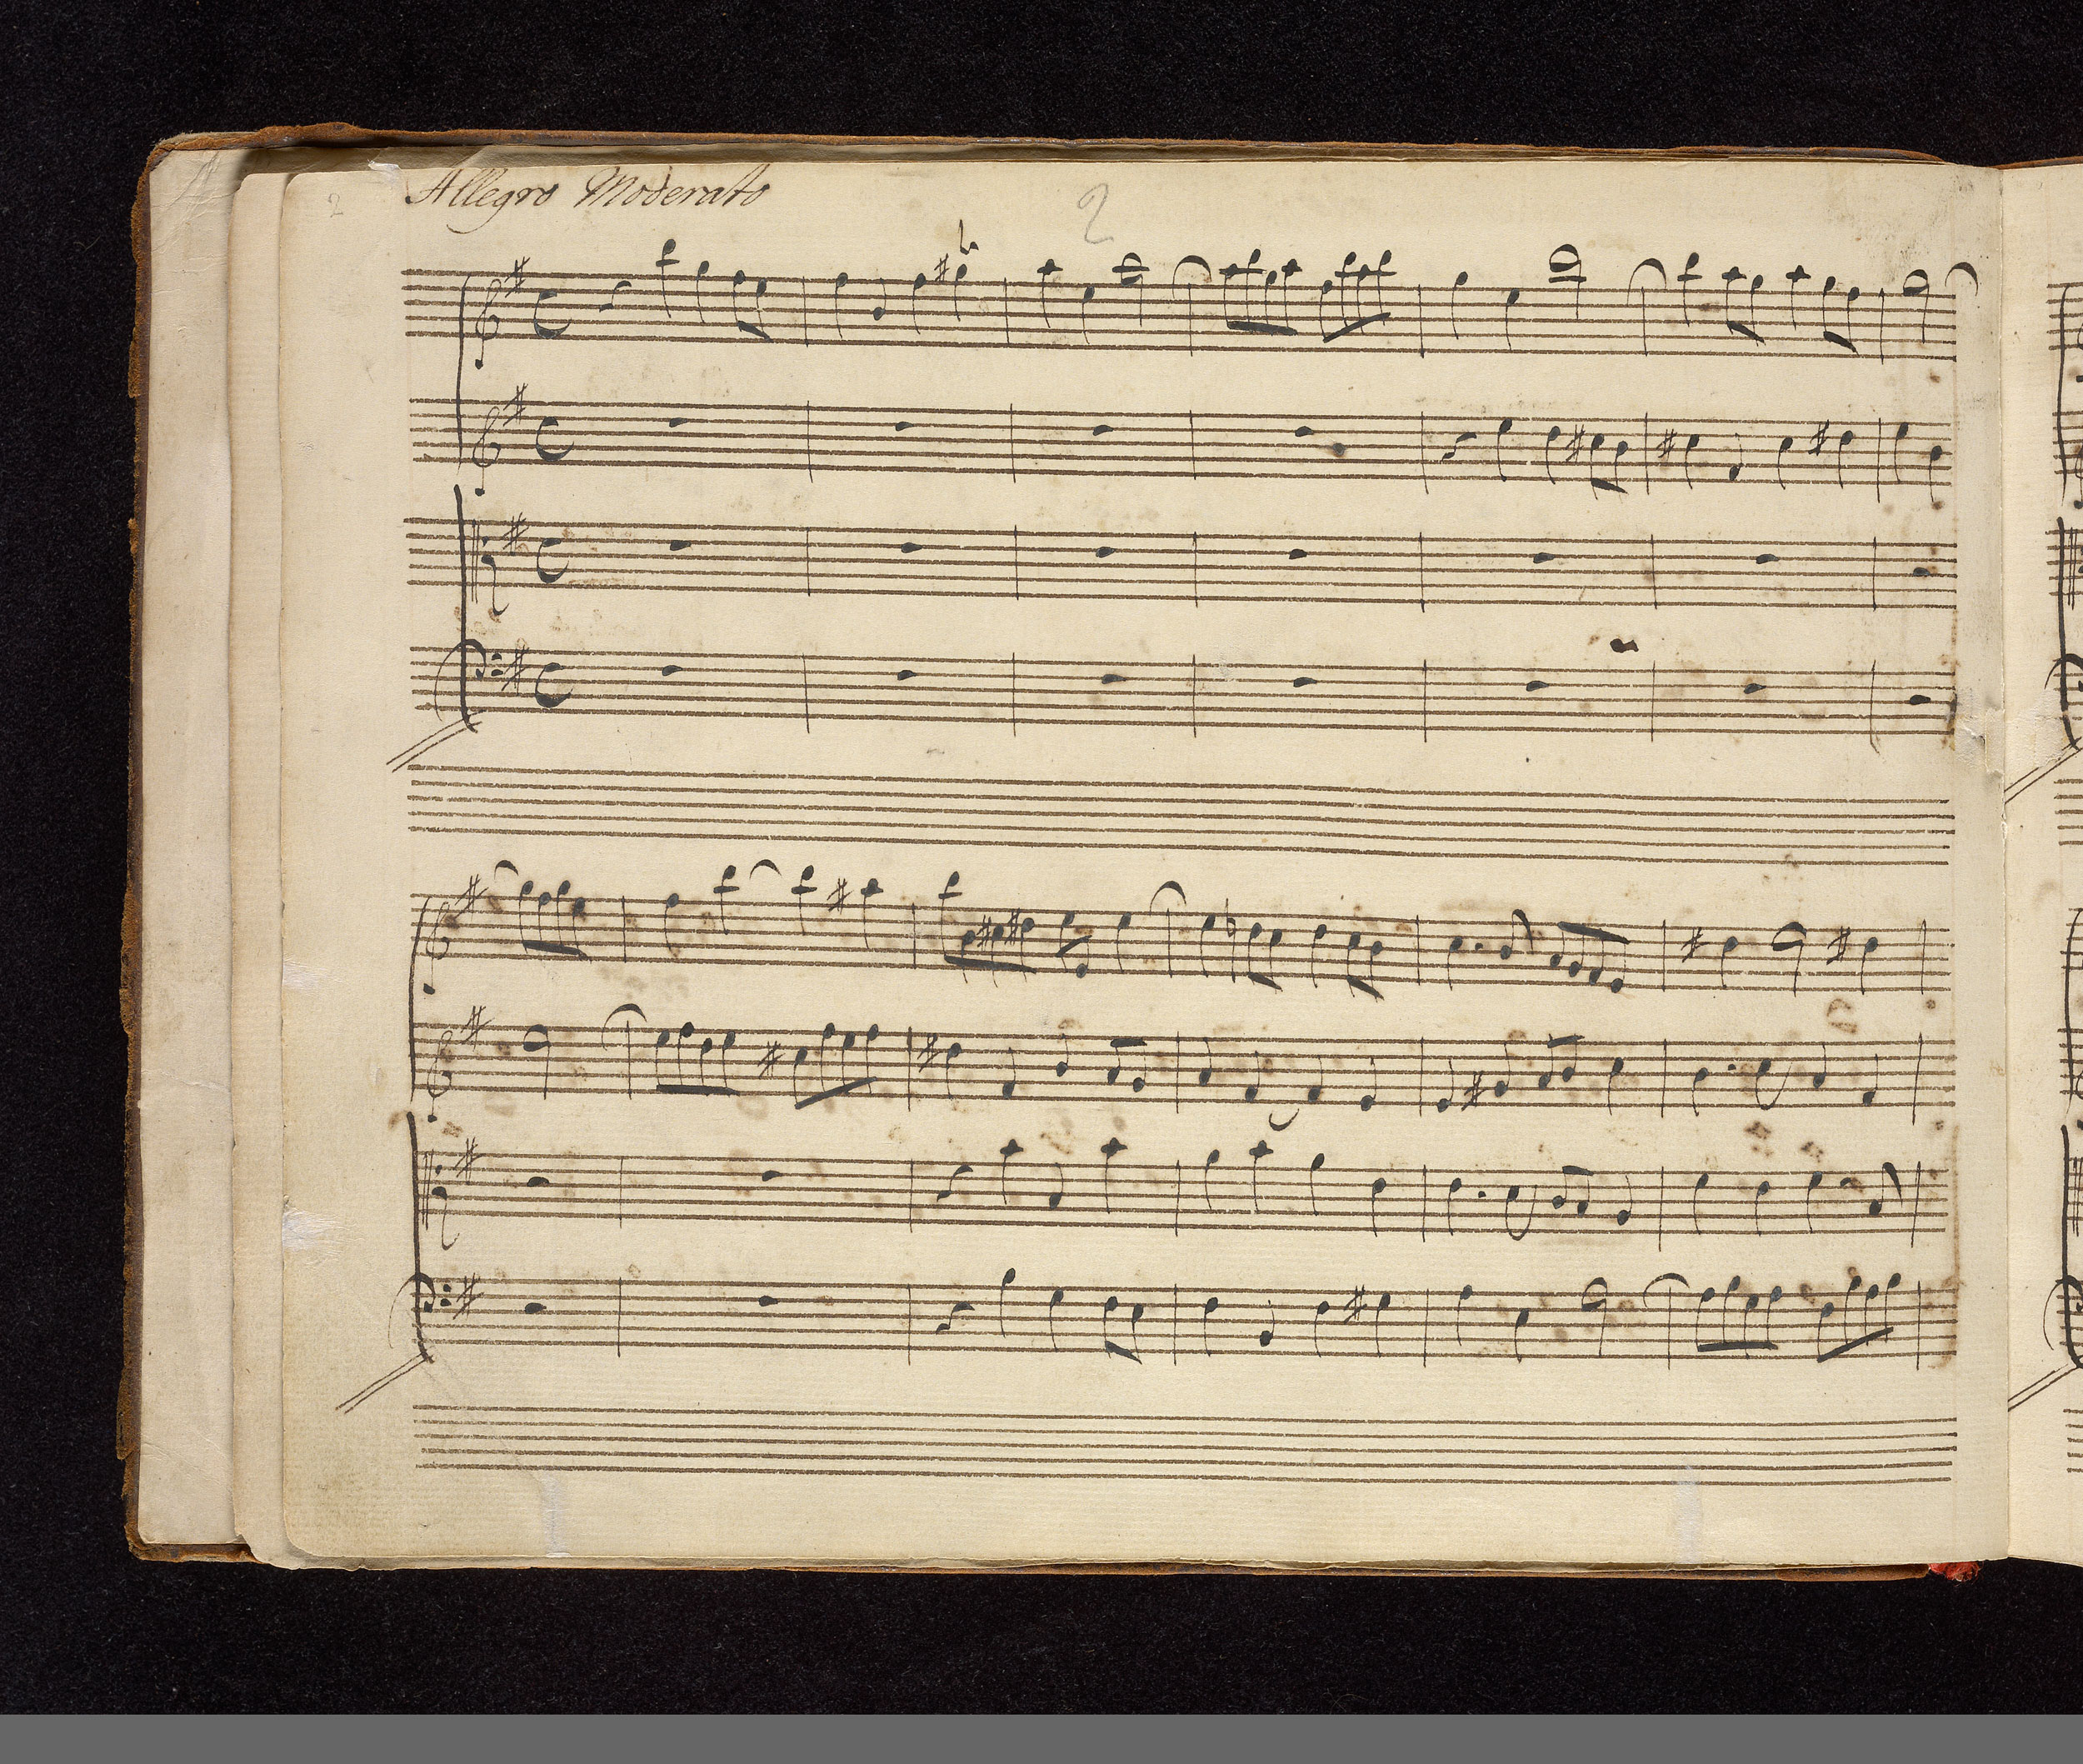 2 Allegro Moderato 2